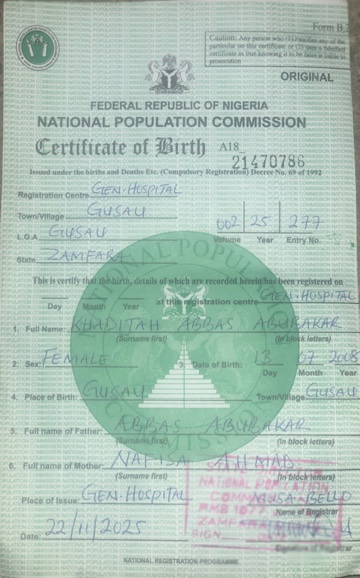 Form B.
Caution: Any person who (1) falsifies any of the
particular on this certificate or (2) uses a falsified
certificate as true knowing it to be false is liable to
prosecution
ORIGINAL
FEDERAL REPUBLIC OF NIGERIA
NATIONAL POPULATION COMMISSION
Certificate of Birth A18 21470786
Issued under the births and Deaths Etc. (Compulsory Registration) Decree No. 69 of 1992
Registration Centre GEN-HOSPITAL
Town/Village GUSAU
L.G.A GUSAU
002 25 277
Volume Year Entry No.
State ZAMFARA
This is certify that the birth, details of which are recorded herein has been registered on
at this registration centre GEN-HOSPITAL
Day Month Year
1. Full Name: KHADIJAH ABBAS ABUBAKAR
(Surname first) (In block letters)
2. Sex: FEMALE 3. Date of Birth: 13 07 2008
Day Month Year
4. Place of Birth: GUSAU Town/Village GUSAU
5. Full name of Father: ABBAS ABUBAKAR
(Surname first) (In block letters)
6. Full name of Mother: NAFISA AHMAD
(Surname first) (In block letters)
Place of Issue: GEN-HOSPITAL MUSA BELLO
Name of Registrar
Date: 22/11/2025
Signature of Registrar
NATIONAL POPULATION
COMMISSION
PMB 1077
ZAMFARA
SIGN
NATIONAL REGISTRATION PROGRAMME
NATIONAL POPULATION COMMISSION